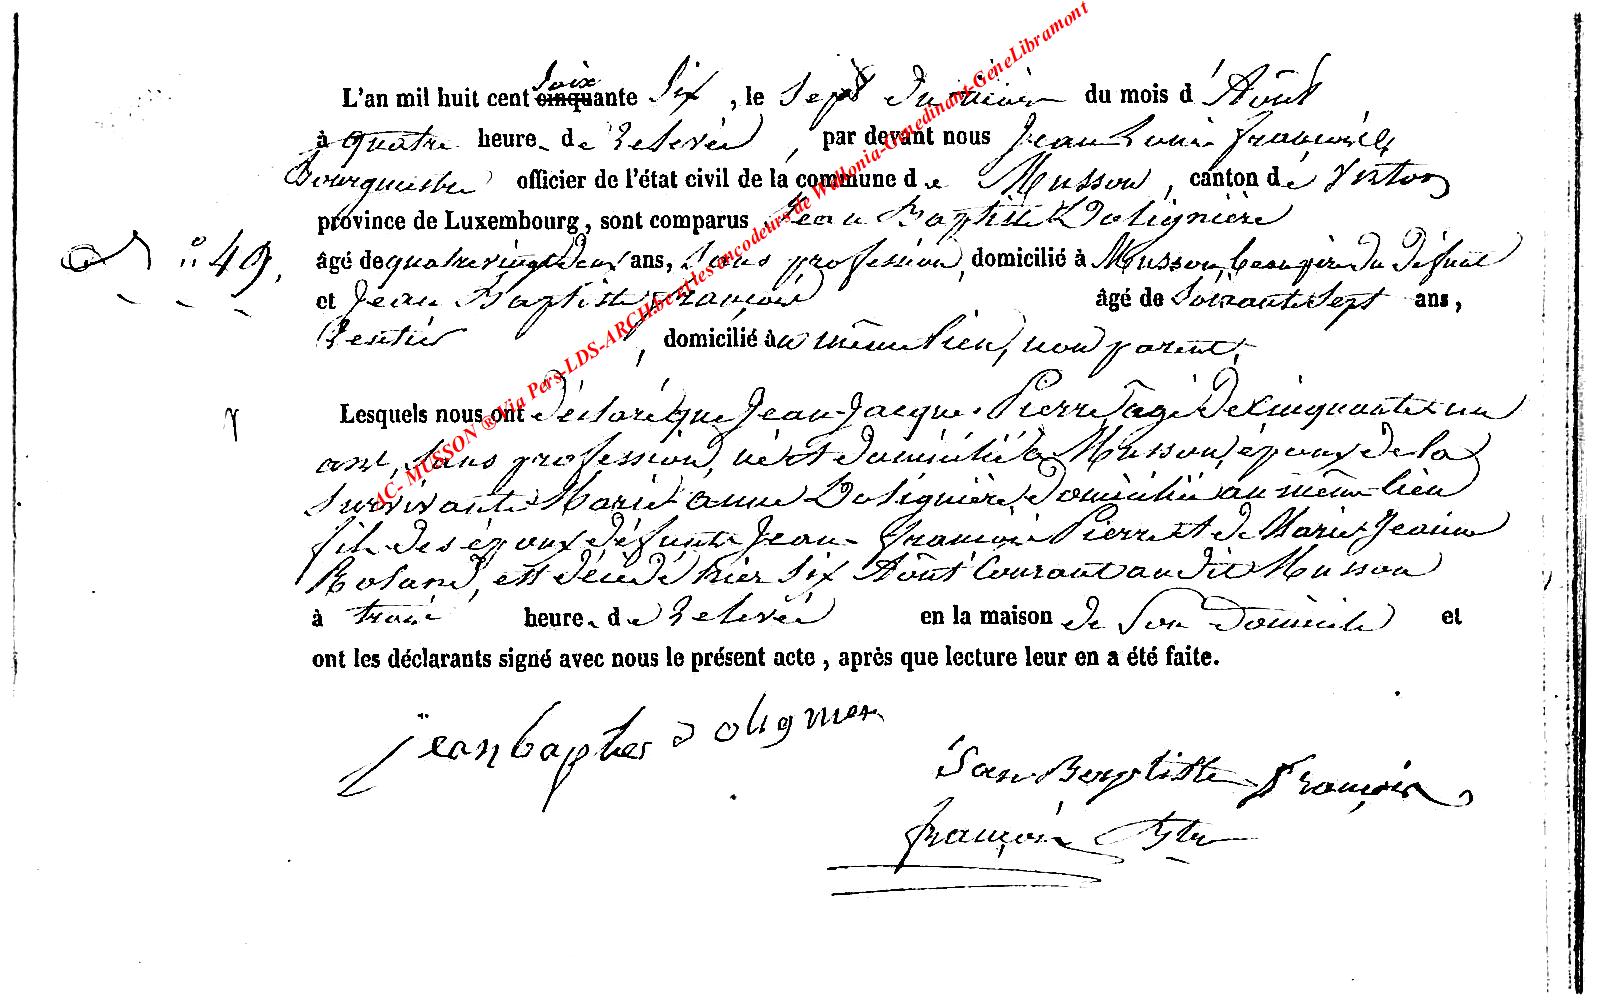 L'an mil huit cent soixante Six, le Sept du mois d'Août
à quatre heure. de relevée, par devant nous Jean Louis François,
Bourgmestre officier de l'état civil de la commune de Musson, canton de Virton
province de Luxembourg, sont comparus Jean Baptiste Dolignière
N° 49.
âgé de quatrevingt deux ans, Sans profession, domicilié à Musson, beau père du défunt
et Jean Baptiste François âgé de Soixante Sept ans,
Rentier, domicilié au même lieu, non parent,
Lesquels nous ont déclaré que Jean Jacques Pierret âgé de cinquante un
ans, Sans profession, né et domicilié à Musson, époux de la
Survivante Marie anne Dolignière, domiciliée au même lieu
fils des époux défunts Jean François Pierret et de Marie Jeanne
Roland, est décédé hier Six Août Courant au dit Musson
à trois heure. de relevée en la maison de Son Domicile et
ont les déclarants signé avec nous le présent acte, après que lecture leur en a été faite.
jean baptes dolignier
Jean Baptiste François
françois Bstre
AC- MUSSON ® Via Pers-LDS-ARCH.be et les encodeurs de Wallonia-Genedinant-GeneLibramont